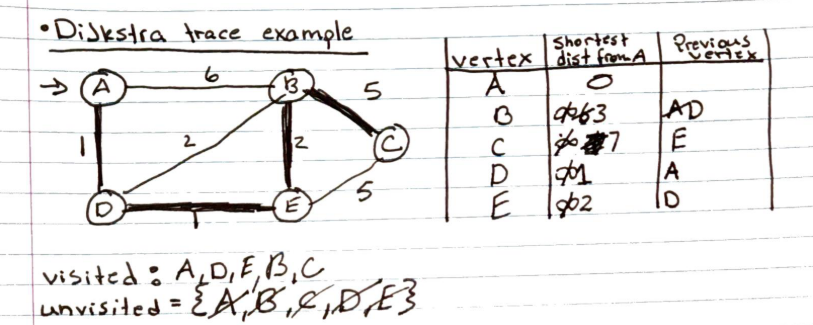 • Dijkstra trace example
→ A 6 B 5
1 2 2 C
D 1 E 5
vertex | shortest dist from A | Previous vertex
A | 0 |
B | ∞63 | AD
C | ∞ 7 | E
D | ∞1 | A
E | ∞2 | D
visited: A, D, E, B, C
unvisited = {A, B, C, D, E}